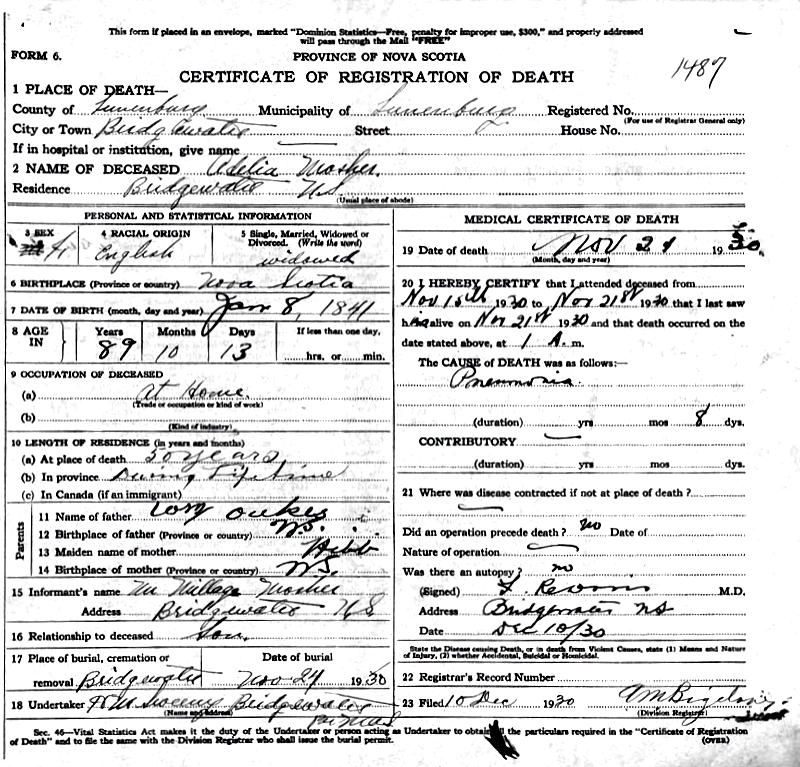 This form if placed in an envelope, marked "Dominion Statistics—Free, penalty for improper use, $300," and properly addressed
will pass through the Mail "FREE"
FORM 6.
PROVINCE OF NOVA SCOTIA
1487
CERTIFICATE OF REGISTRATION OF DEATH
1 PLACE OF DEATH—
County of Lunenburg Municipality of Lunenburg Registered No.
(For use of Registrar General only)
City or Town Bridgewater Street House No.
If in hospital or institution, give name
2 NAME OF DECEASED Adelia Mosher.
Residence Bridgewater N.S.
(Usual place of abode)
PERSONAL AND STATISTICAL INFORMATION
3 SEX 4 RACIAL ORIGIN 5 Single, Married, Widowed or Divorced. (Write the word)
F. English widowed
6 BIRTHPLACE (Province or country) Nova Scotia
7 DATE OF BIRTH (month, day and year) Jan 8, 1841
8 AGE IN Years Months Days If less than one day,
89 10 13 hrs. or min.
9 OCCUPATION OF DECEASED
(a) At Home.
(Trade or occupation or kind of work)
(b)
(Kind of industry)
10 LENGTH OF RESIDENCE (in years and months)
(a) At place of death 50 years
(b) In province During Lifetime
(c) In Canada (if an immigrant)
Parents
11 Name of father
12 Birthplace of father (Province or country) N.S.
13 Maiden name of mother Hibb
14 Birthplace of mother (Province or country) N.S.
15 Informant's name Mr Millage Mosher
Address Bridgewater N.S
16 Relationship to deceased Son.
17 Place of burial, cremation or Date of burial
removal Bridgewater Nov 24 1930
18 Undertaker Bridgewater
(Name or address)
MEDICAL CERTIFICATE OF DEATH
19 Date of death Nov 21 1930
(Month, day and year)
20 I HEREBY CERTIFY that I attended deceased from
Nov 15th 1930 to Nov 21st 1930 that I last saw
h alive on Nov 21st 1930 and that death occurred on the
date stated above, at 1 A. m.
The CAUSE of DEATH was as follows:—
Pneumonia.
(duration) yrs mos 8 dys.
CONTRIBUTORY
(duration) yrs mos dys.
21 Where was disease contracted if not at place of death?
Did an operation precede death? no Date of
Nature of operation
Was there an autopsy? no
(Signed) M.D.
Address Bridgewater NS
Date Dec 10/30
State the Disease causing Death, or in death from Violent Causes, state (1) Means and Nature
of Injury, (2) whether Accidental, Suicidal or Homicidal.
22 Registrar's Record Number
23 Filed 10 Dec 1930
(Division Registrar)
Sec. 46—Vital Statistics Act makes it the duty of the Undertaker or person acting as Undertaker to obtain all the particulars required in the "Certificate of Registration
of Death" and to file the same with the Division Registrar who shall issue the burial permit.
(OVER)